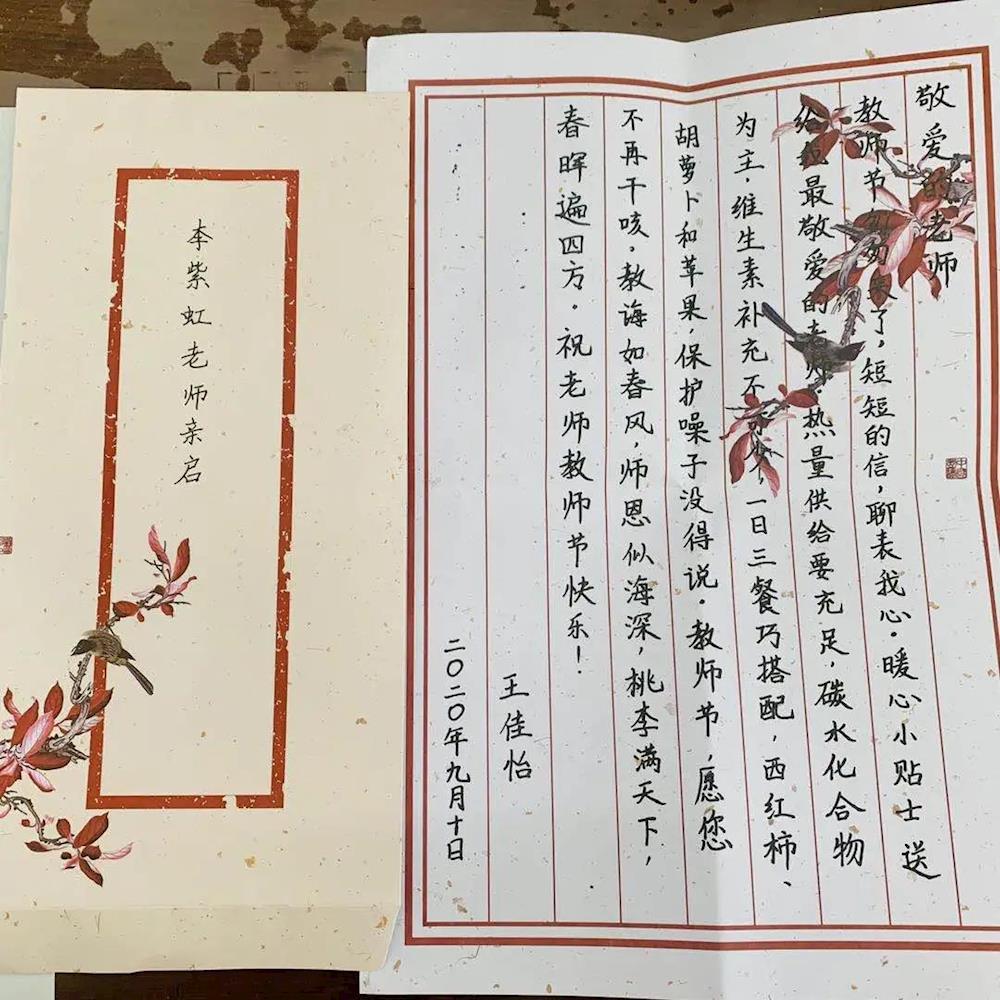 李紫虹老师亲启
敬爱的老师
教师节匆匆来了，短短的信，聊表我心。暖心小贴士送
给我最敬爱的老师，热量供给要充足，碳水化合物
为主，维生素补充不可少，一日三餐巧搭配，西红柿、
胡萝卜和苹果，保护噪子没得说。教师节，愿您
不再干咳，教诲如春风，师恩似海深，桃李满天下，
春晖遍四方。祝老师教师节快乐！
王佳怡
二〇二〇年九月十日